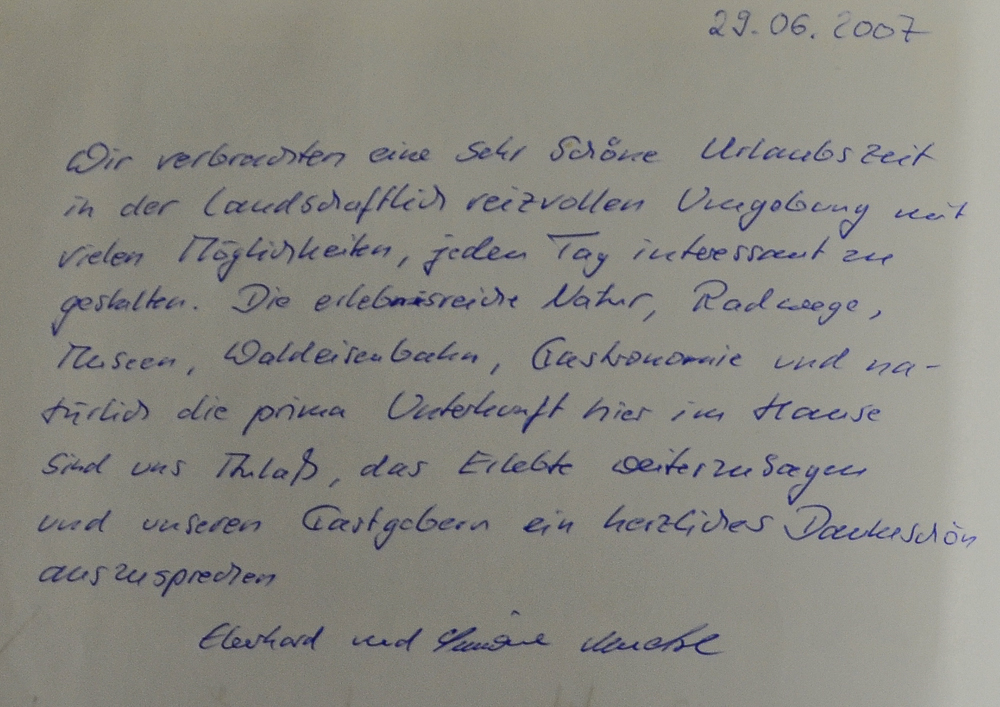 29.06.2007
Wir verbrachten eine sehr schöne Urlaubszeit
in der landschaftlich reizvollen Umgebung mit
vielen Möglichkeiten, jeden Tag interessant zu
gestalten. Die erlebnisreiche Natur, Radwege,
Museen, Waldeisenbahn, Gastronomie und na-
türlich die prima Unterkunft hier im Hause
sind uns Anlaß, das Erlebte weiterzusagen
und unseren Gastgebern ein herzliches Dankeschön
auszusprechen
Eberhard und